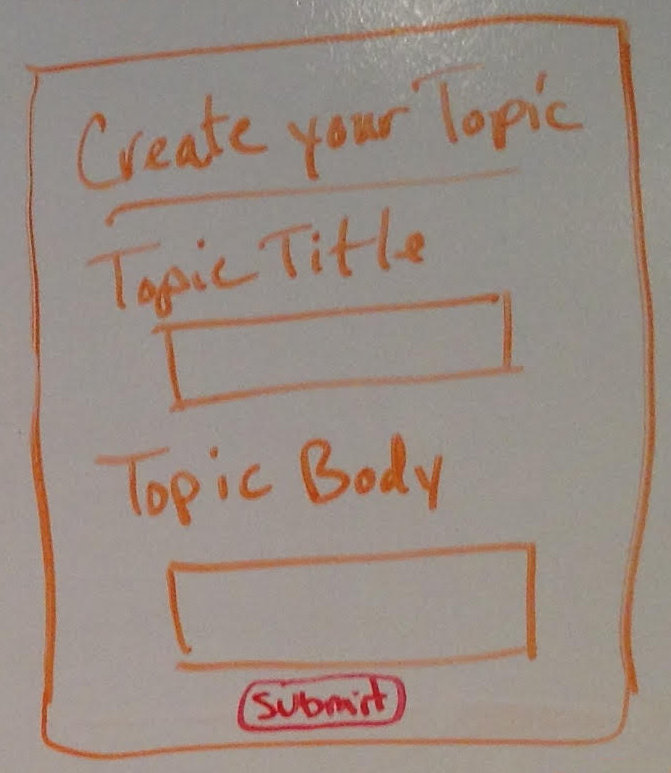 Create your Topic
Topic Title
Topic Body
Submit